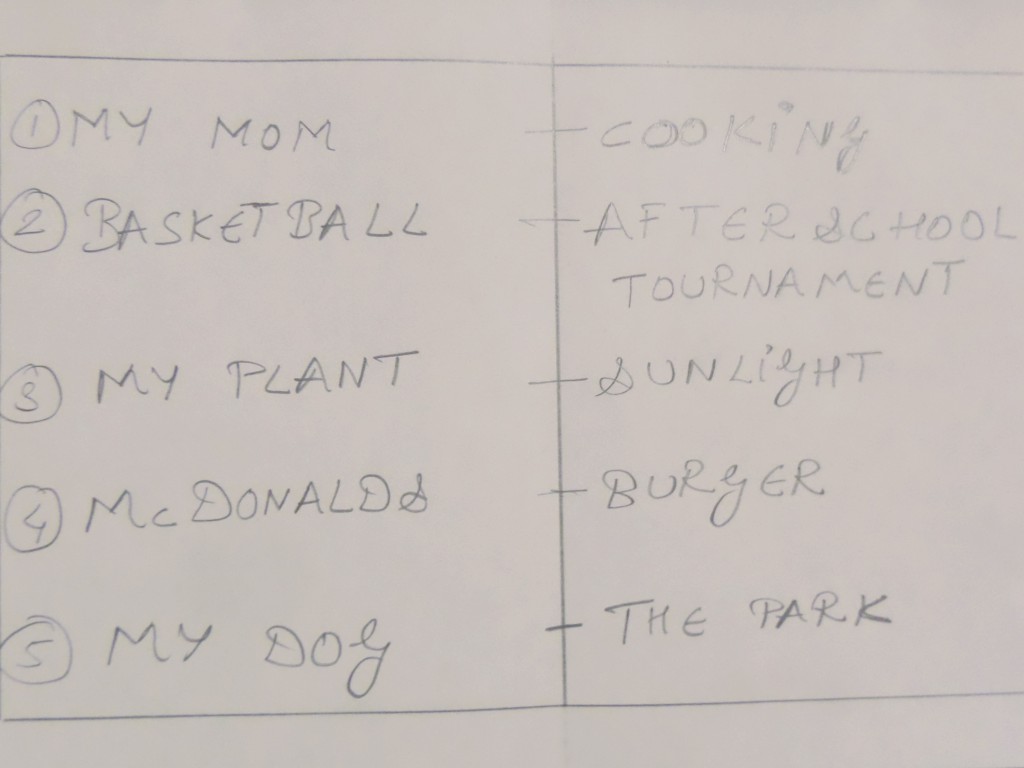 1 MY MOM - COOKING
2 BASKETBALL - AFTER SCHOOL
TOURNAMENT
3 MY PLANT - SUNLIGHT
4 McDONALDS - BURGER
5 MY DOG - THE PARK